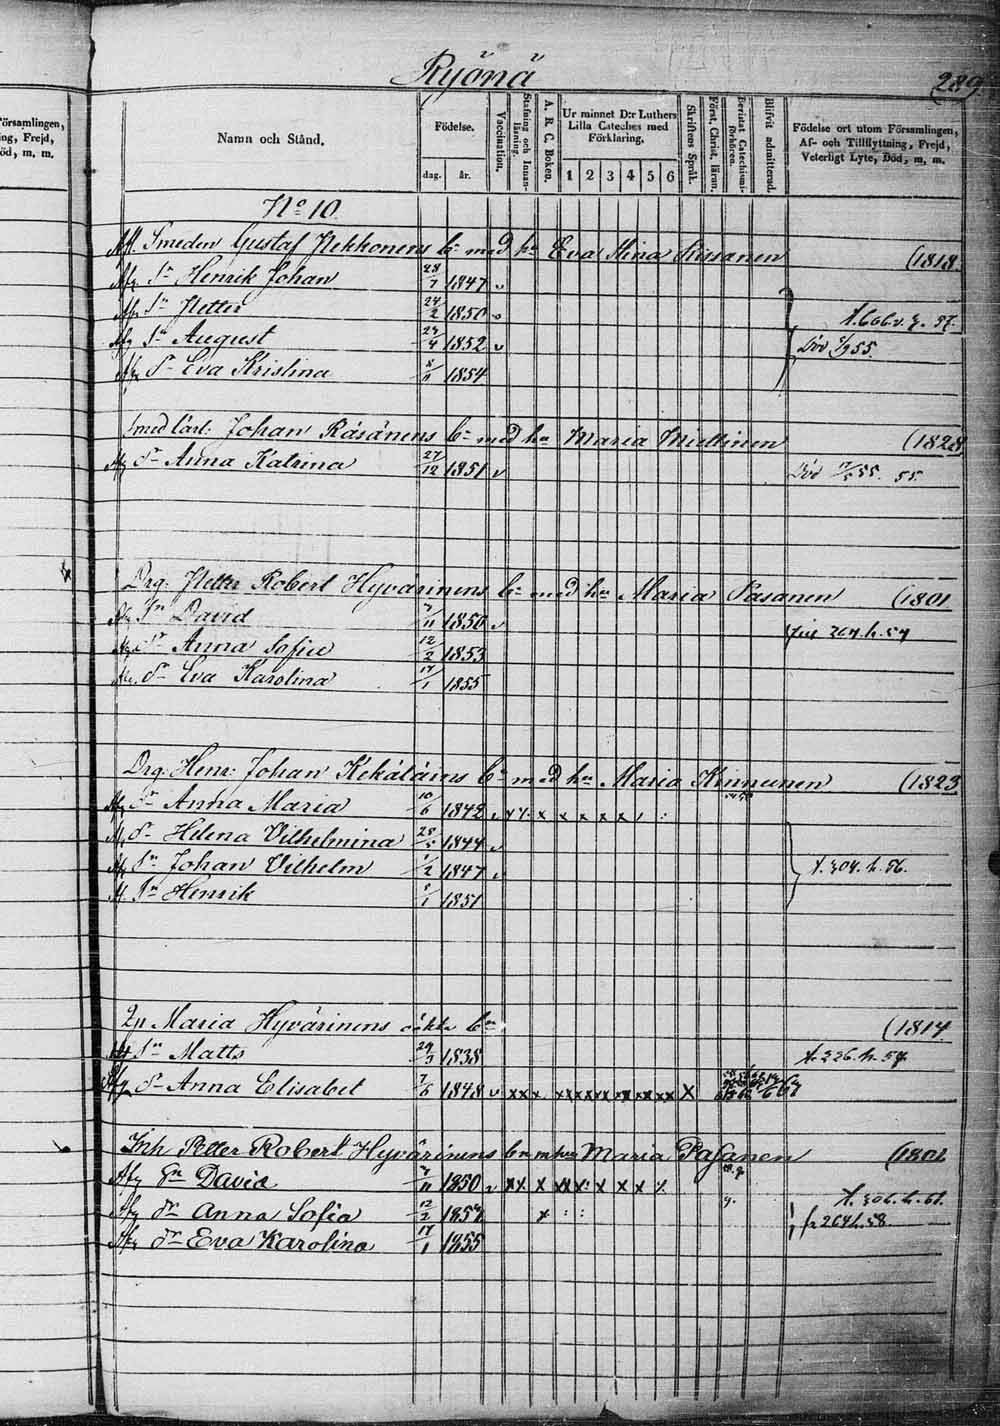 Ryönä
289
Församlingen,
ing, Frejd,
öd, m. m.
Namn och Stånd.
Födelse.
dag.
år.
Vaccination.
Stafning och Innan-läsning.
A. B. C. Boken.
Ur minnet D:r Luthers
Lilla Cateches med
Förklaring.
1 2 3 4 5 6
Skriftens Språk.
Först. Christ. läran.
Bevistat Catechismi-förhören.
Blifvit admitterad.
Födelse ort utom Församlingen,
Af- och Tillflyttning, Frejd,
Veterligt Lyte, Död, m. m.
No 10
Smeden Gustaf Nekkonens bn med hu Eva Stina Rissanen (1818.
Sn Henrik Johan 28/7 1847 v
Sn Petter 24/2 1850 v t. 666. v. 57.
Sn August 1852 v Död 55.
Dr Eva Kristina 8/11 1854
Smed lärl: Johan Räsänens bn med hu Maria Miettinen (1828
Dr Anna Katrina 27/12 1851 v Död 55. 55.
Drg: Petter Robert Hyvärinens bn med hu Maria Pasanen (1801
Sn David 7/11 1850 v 264. h. 54
Dr Anna Sofia 12/2 1853
Dr Eva Karolina 14/1 1855
Drg: Henr: Johan Kekäläins bn med hu Maria Kinnunen (1823
Dr Anna Maria 10/6 1842 v x x x x x x
Dr Helena Vilhelmina 28/5 1844 v
Sn Johan Vilhelm 1/2 1847 v t. 304. h. 56.
Sn Henrik 8/1 1851
Qp Maria Hyvärinens oäkta bn (1817.
Sn Matts 29/3 1838 t. 226. h. 54
Dr Anna Elisabet 7/6 1848 v xx x xx xx xx xx xx xx X
Inh Petter Robert Hyvärinens bn m hu Maria Pasanen (1801
Sn David 7/11 1850 v xx x x x x x t. 306. h. 61.
dr Anna Sofia 12/2 1857 x : : fr 264 h. 58
dr Eva Karolina 14/1 1855